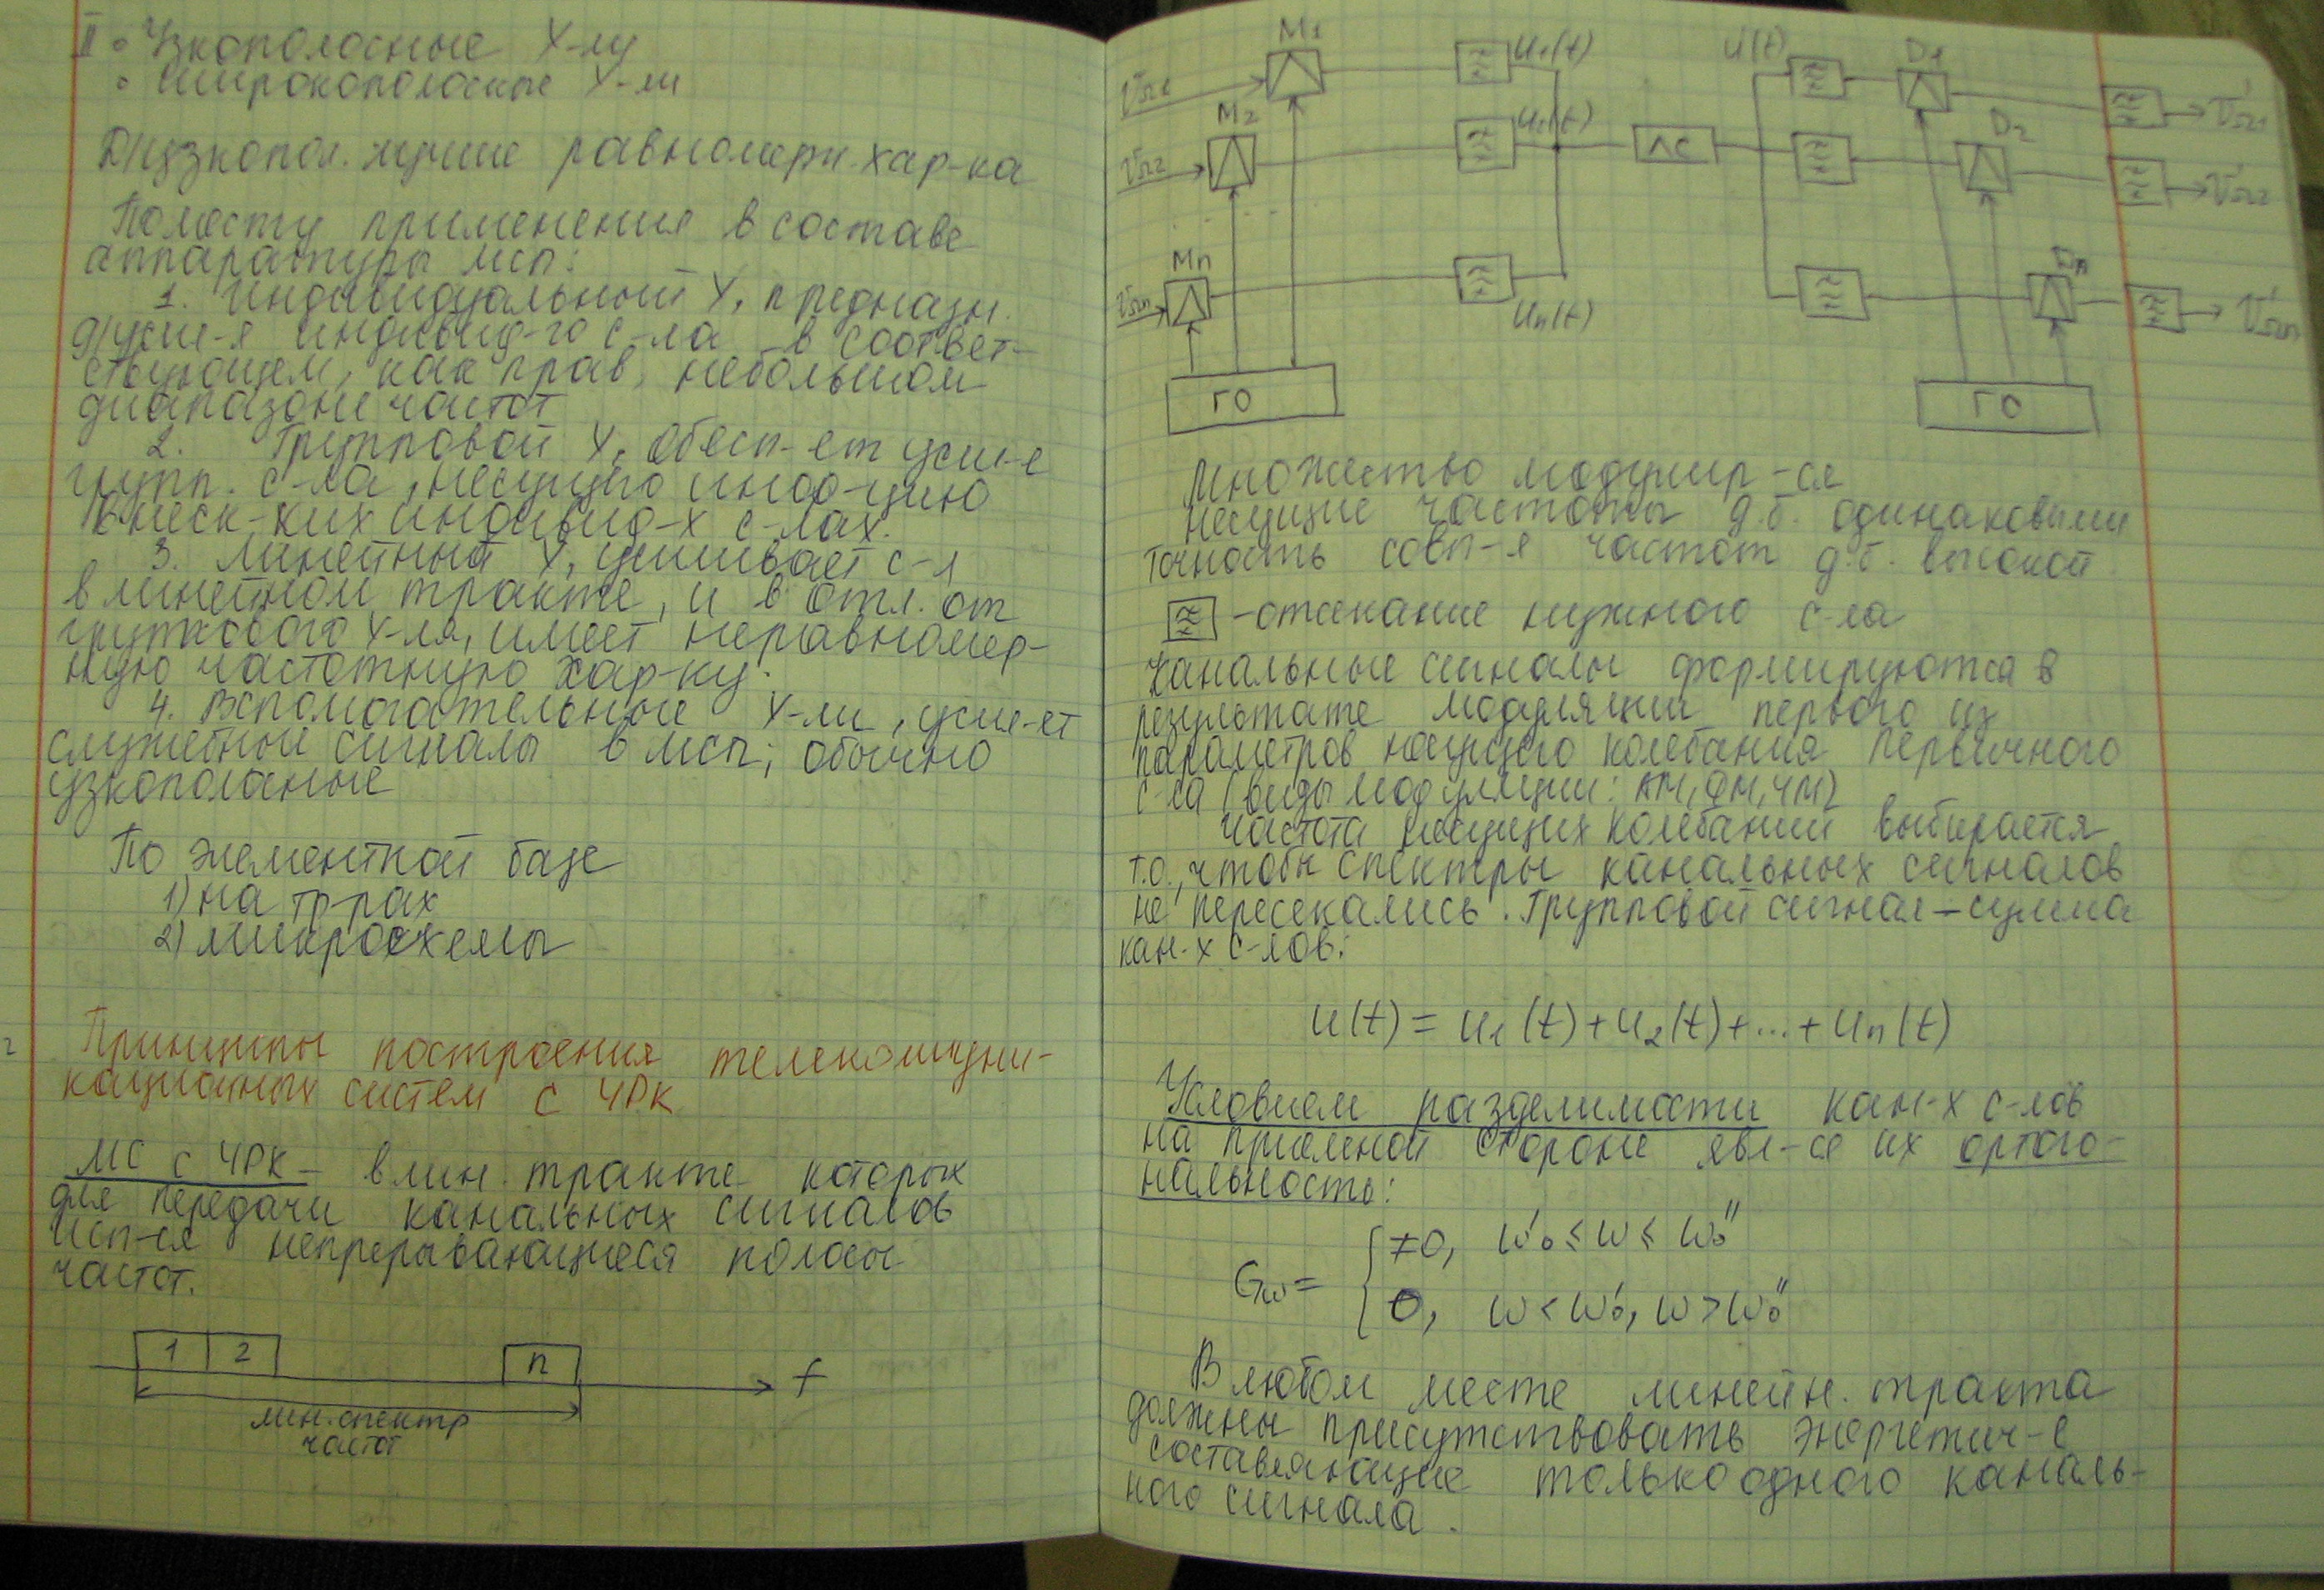 II ∘ Узкополосные У-лу
∘ Широкополосные У-ли
Д/узкопол. лучше равномерн. хар-ка
По месту применения в составе
аппаратуры МСП:
1. Индивидуальный У, предназн.
д/усил-я индивид-го с-ла в соответ-
ствующем, как прав, небольшом
диапазоне частот
2. Групповой У, обесп-ет усил-е
групп. с-ла, несущего инфо-цию
в неск-ких индивид-х с-лах.
3. Линейный У, усиливает с-л
в линейном тракте, и в отл. от
группового У-ля, имеет неравномер-
ную частотную хар-ку.
4. Вспомогательные У-ли, усил-ет
служебной сигналы в МСП; обычно
узкополосные
По элементной базе
1) на тр-рах
2) микросхемы
2
Принципы построения телекоммуни-
кационных систем с ЧРК
МС с ЧРК – в лин. тракте которых
для передачи канальных сигналов
исп-ся непрерывающиеся полосы
частот.
1 2 n f
лин. спектр
частот
M1 U1(t) U(t) D1
VΩ1 V'Ω1
M2 U2(t) D2
VΩ2 ЛС V'Ω2
Mn Dn
VΩn Un(t) V'Ωn
ГО ГО
Множество модулир-ся
несущие частоты д.б. одинаковыми
точность совп-я частот д.б. высокой
≈ - отсекание нужного с-ла
Канальные сигналы формируются в
результате модуляции первого из
параметров несущего колебания первичного
с-ла (виды модуляции: АМ, ФМ, ЧМ)
Частота несущих колебаний выбирается
т.о., чтобы спектры канальных сигналов
не пересекались. Групповой сигнал – сумма
кан-х с-лов:
U(t) = U1(t) + U2(t) + ... + Un(t)
Условием разделимости кан-х с-лов
на приемной стороне явл-ся их ортого-
нальность:
Gω = { ≠0, ω'₀ ≤ ω ≤ ω₀''
0, ω < ω'₀, ω > ω₀''
В любом месте линейн. тракта
должны присутствовать энергетич-е
составляющие только одного каналь-
ного сигнала.